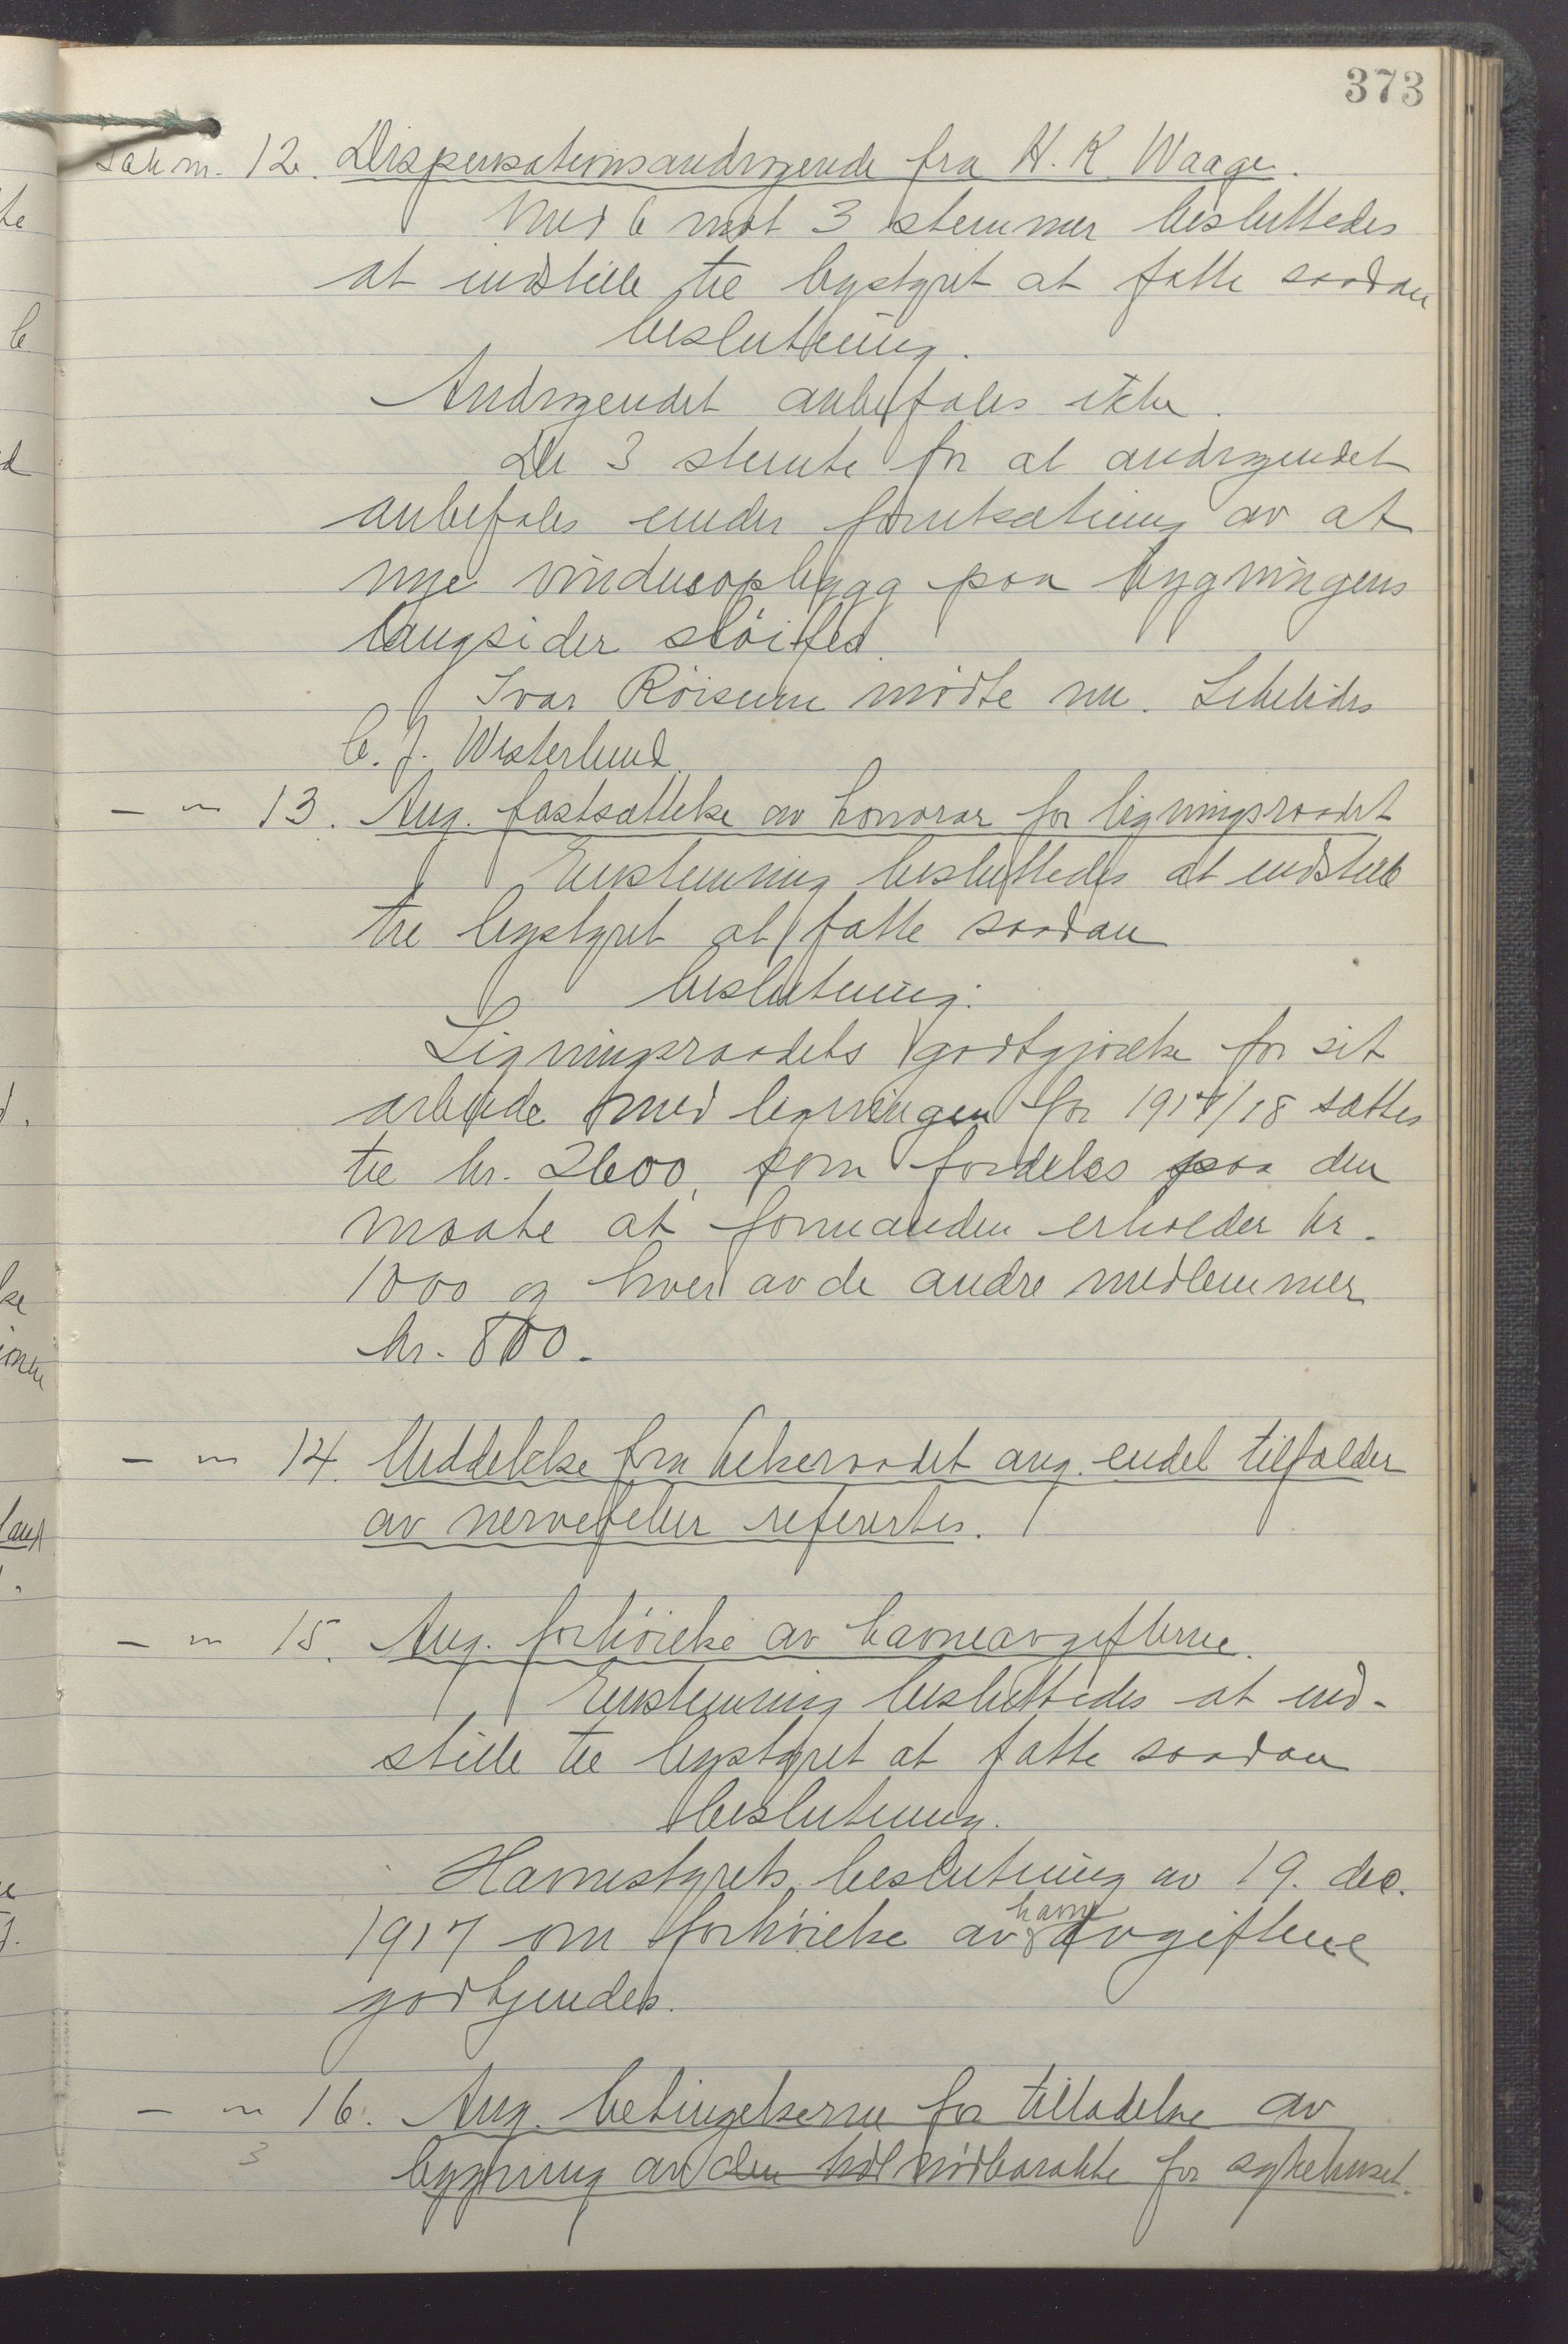 373
Sak nr. 12. Dispensationsandragende fra H. K. Waage.
Med 6 mot 3 stemmer besluttedes
at indstille til bystyret at fatte saadan
beslutning.
Andragendet anbefales ikke.
De 3 stemte for at andragendet
anbefales under forutsætning av at
nye vinduesopbygg paa bygningens
langsider sløifes.
Ivar Röiseum mødte nu.
C. J. Westerlund.
— " — 13. Ang. fastsættelse av honorar for ligningsraadet
Enstemmig besluttedes at indstille
til bystyret at fatte saadan
beslutning:
Ligningsraadets godtgjørelse for sit
arbeide med ligningen for 1917/18 sættes
til kr. 2600, som fordeles paa den
maate at formanden erholder kr.
1000 og hver av de andre medlemmer
kr. 800.
— " — 14. Meddelelse fra helseraadet ang. endel tilfælder
av nervefeber referertes.
— " — 15. Ang. forhøielse av havneavgifterne.
Enstemmig besluttedes at ind-
stille til bystyret at fatte saadan
beslutning.
Havnestyrets beslutning av 19. dec.
1917 om forhøielse av havneavgiftene
godkjendes.
— " — 16. Ang. betingelserne for tilladelse av
bygning av den nødbarakke for sykehuset.
3